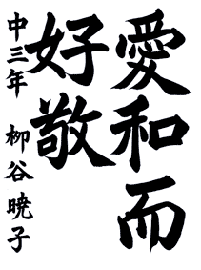 愛和而
好敬
中三年 柳谷暁子